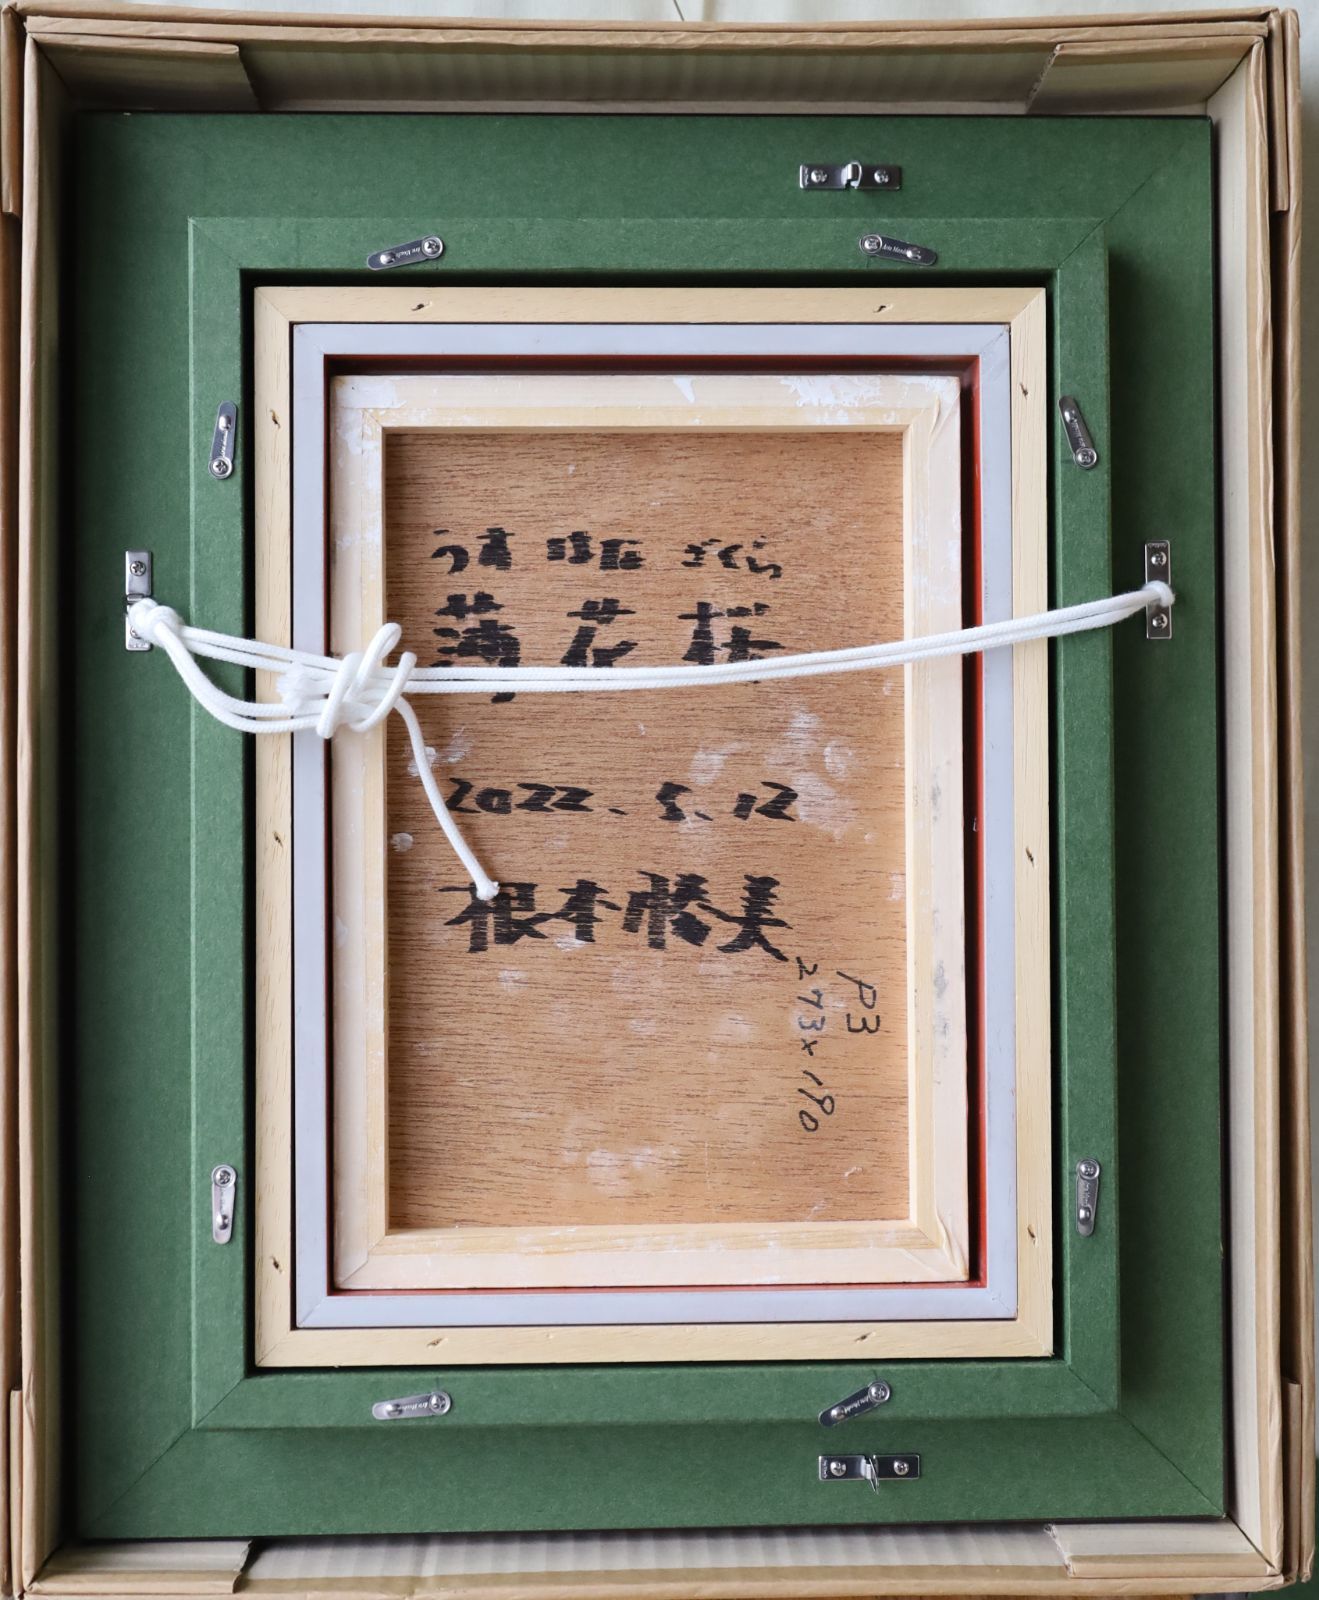 うす はな ざくら
薄花桜
2022.5.12
根本勝美
P3
273×190